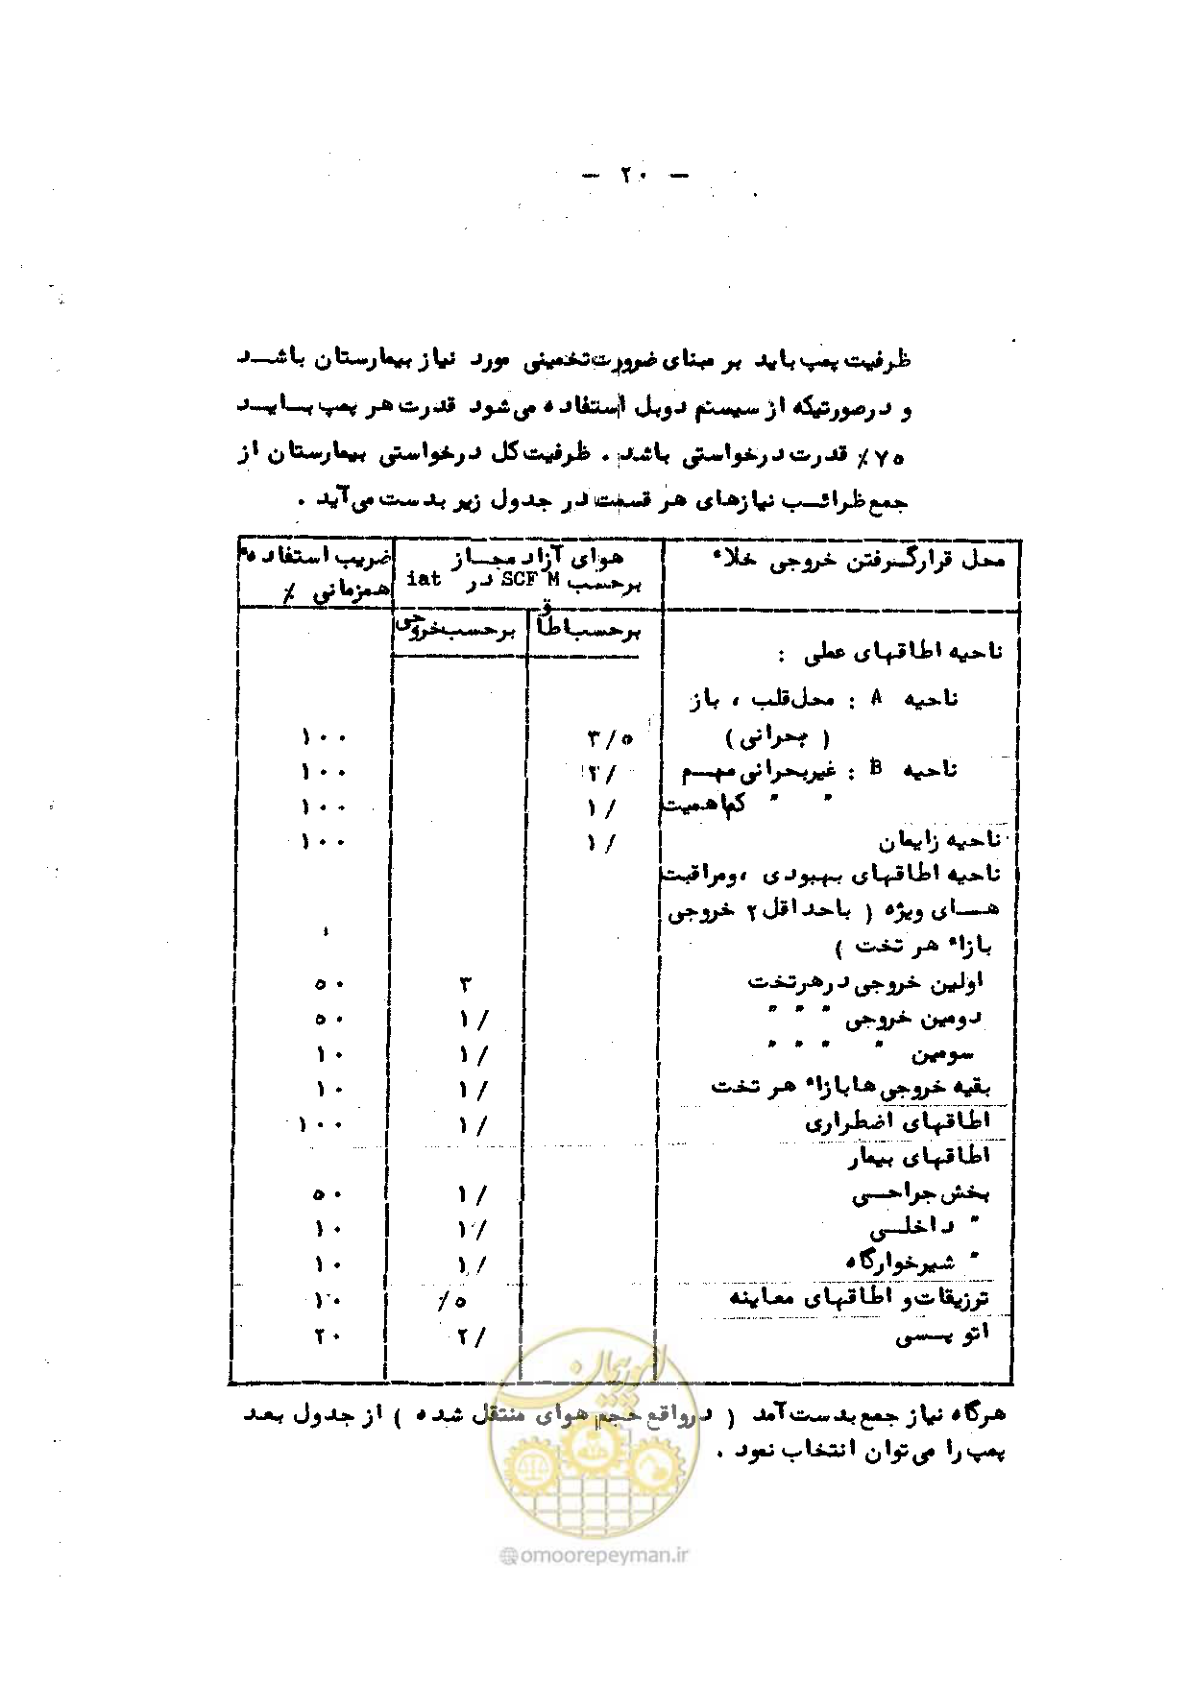 — ۲۰ —
ظرفیت پمپ باید بر مبنای ضرورت تخمینی مورد نیاز بیمارستان باشد
و درصورتیکه از سیستم دوبل استفاده می شود قدرت هر پمپ باید
۷۵٪ قدرت درخواستی باشد . ظرفیت کل درخواستی بیمارستان از
جمع ظرائب نیازهای هر قسمت در جدول زیر بدست می آید .
محل قرارگرفتن خروجی خلاء	هوای آزاد مجاز برحسب SCFM در iat	ضریب استفاده همزمانی ٪
برحسب اطاق	برحسب خروجی
ناحیه اطاقهای عملی :
ناحیه A : محل قلب ، باز
( بحرانی )	۳/۵	۱۰۰
ناحیه B : غیربحرانی مهم	۲/	۱۰۰
" " کم اهمیت	۱/	۱۰۰
ناحیه زایمان	۱/	۱۰۰
ناحیه اطاقهای بهبودی ،ومراقبت
های ویژه ( باحداقل ۲ خروجی
بازاء هر تخت )
اولین خروجی درهرتخت	۳	۵۰
دومین خروجی " " "	۱/	۵۰
سومین " " " "	۱/	۱۰
بقیه خروجی ها بازاء هر تخت	۱/	۱۰
اطاقهای اضطراری	۱/	۱۰۰
اطاقهای بیمار
بخش جراحی	۱/	۵۰
" داخلی	۱/	۱۰
" شیرخوارگاه	۱/	۱۰
تزریقات و اطاقهای معاینه	/۵	۱۰
اتوپسی	۲/	۲۰
هرگاه نیاز جمع بدست آمد ( درواقع حجم هوای منتقل شده ) از جدول بعد
پمپ را می توان انتخاب نمود .
امور پیمان
@omoorepeyman.ir